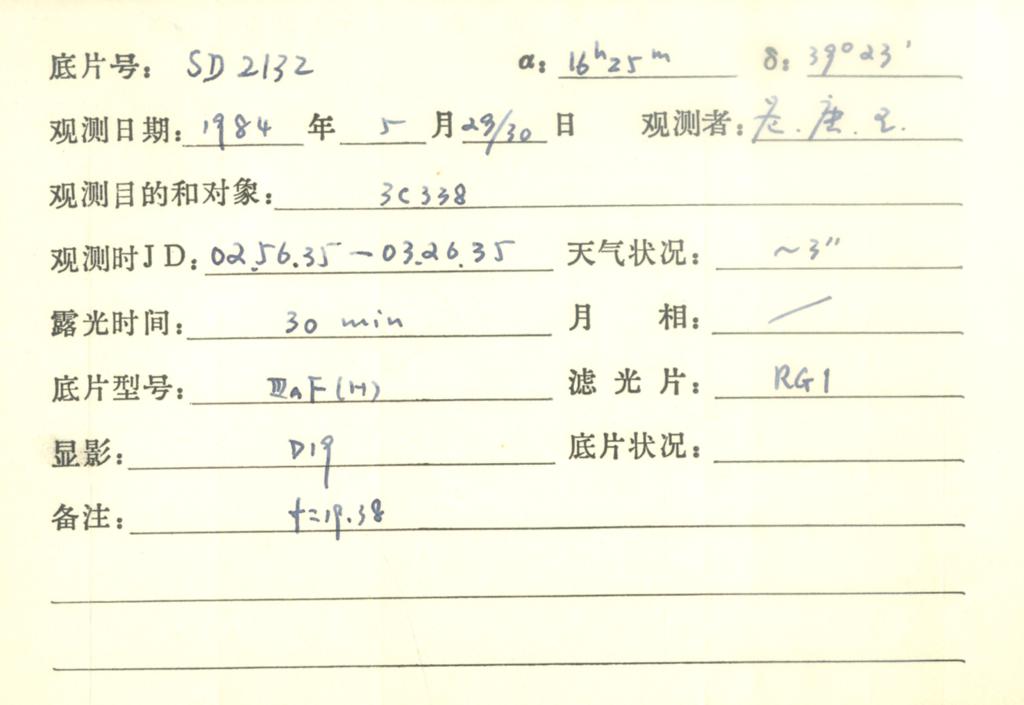 底片号: SD2132 α: 16h25m δ: 39°23′
观测日期: 1984 年 5 月 29/30 日 观测者:
观测目的和对象: 3C338
观测时JD: 02.56.35 — 03.26.35 天气状况: ~3″
露光时间: 30 min 月 相: /
底片型号: ⅢaF(H) 滤光片: RG1
显影: D19 底片状况:
备注: f=19.38